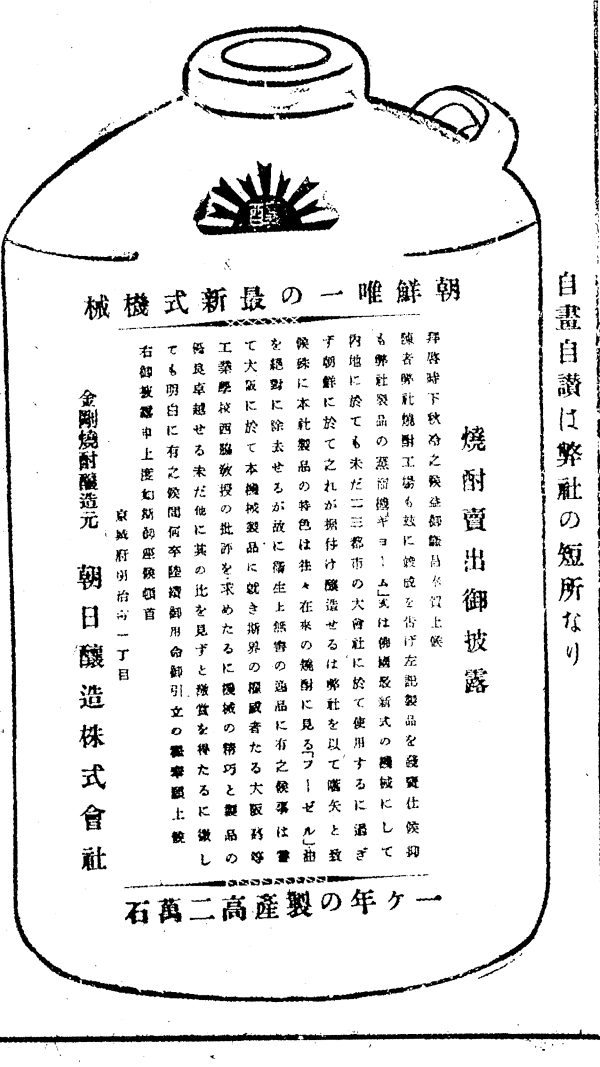 自畫自讃は弊社の短所なり
醸
朝鮮唯一の最新式機械
燒酎賣出御披露
拜啓時下秋冷之候益御隆昌奉賀上候
陳者弊社燒酎工場も玆に竣成を告げ左記製品を發賣仕候抑
も弊社製品の蒸溜機「ギヨーム」式は佛國最新式の機械にして
內地に於ても未だ二三都市の大會社に於て使用するに過ぎ
ず朝鮮に於て之れが据付け釀造せるは弊社を以て嚆矢と致
候殊に本社製品の特色は往々在來の燒酎に見る「フーゼル」油
を絕對に除去せるが故に衞生上無害の逸品に有之候事は嘗
て大阪に於て本機械製品に就き斯界の權威者たる大阪高等
工業學校西脇敎授の批評を求めたるに機械の精巧と製品の
優良卓越せる未だ他に其の比を見ずと激賞を得たるに徵し
ても明白に有之候間何卒陸續御用命御引立の程奉願上候
右御披露申上度如斯御座候頓首
京城府明治町一丁目
金剛燒酎釀造元 朝日釀造株式會社
一ヶ年の製產高二萬石